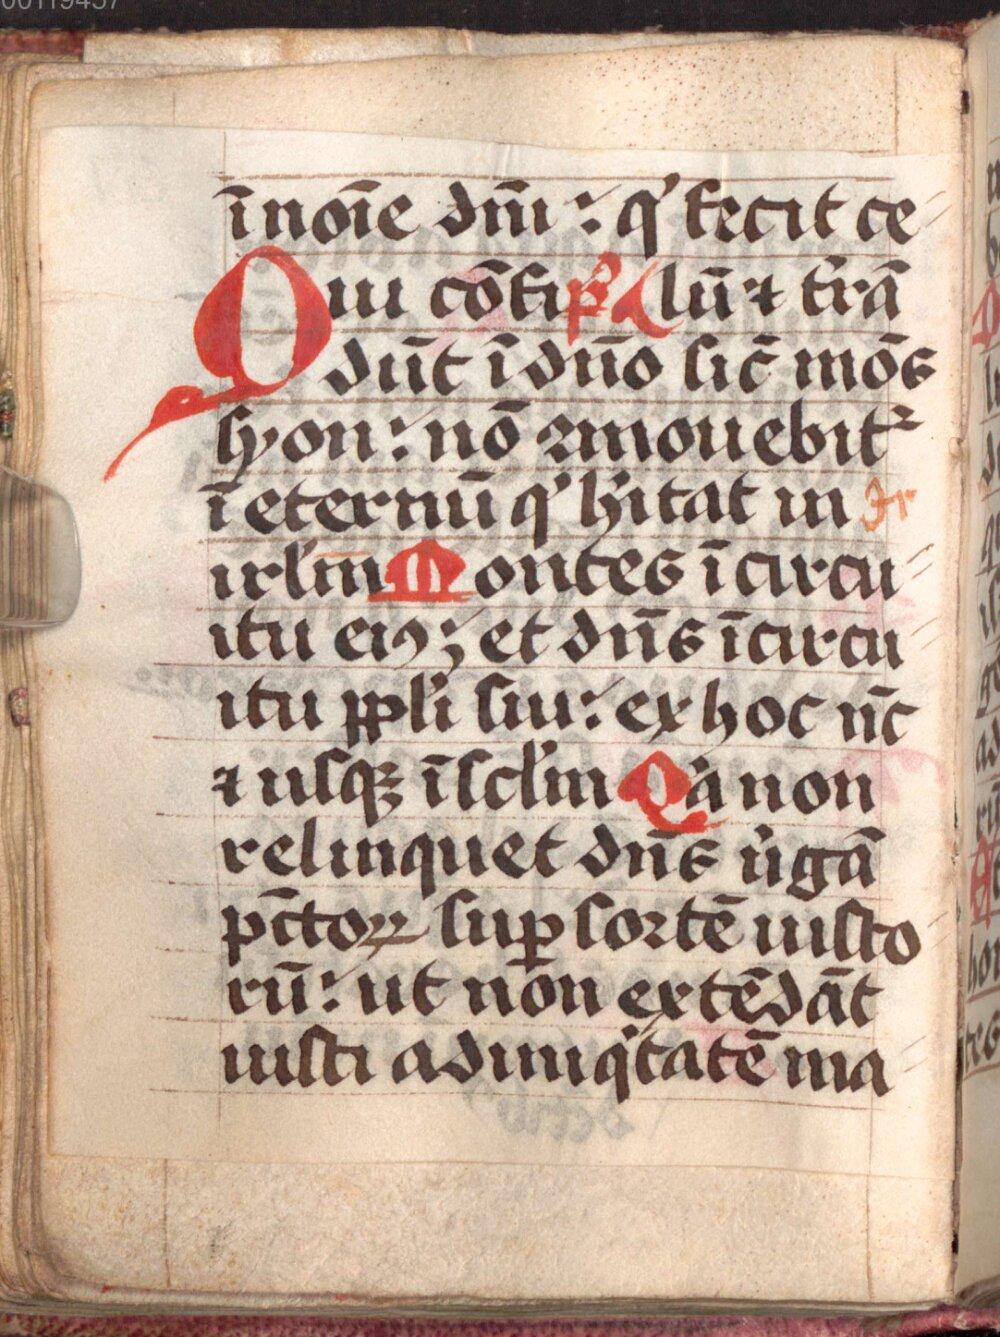 00119457
ī noīe dm̄ : qͥ fecit ce
Qui cōfi p̄s lū ⁊ t̄rā
dūt ī dn̄o sic̄ mōs
syon : nō ꝛmouebit᷑
ī eternū qͥ hītat in Jr
irl̄m Montes ī circu
itu eiꝯ ; et dn̄s ī circu
itu ppl̄i sui : ex hoc nc̄
⁊ usqꝫ ī scl̄m Qͥa non
relinquet dn̄s uͥgā
pc̄toꝝ suꝑ sortē iusto
rū : ut non extēdāt
iusti ad iniqͥtatē ma